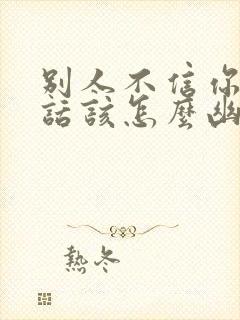 別人不信你
話該怎麼幽
熱冬